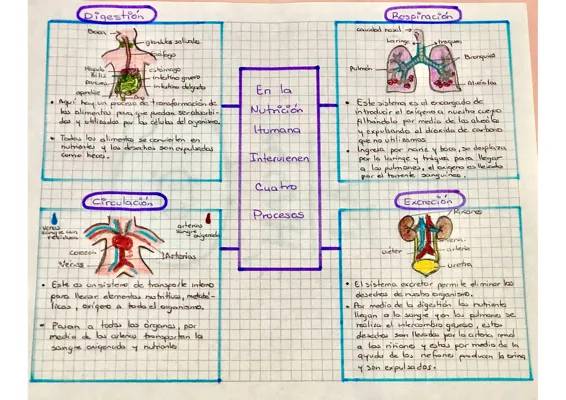 Digestión
Boca
glandulas salivales
esófago
Hígado
estómago
intestino grueso
intestino delgado
Aquí hay un proceso de transformación de
los alimentos para que puedan ser absorbi-
dos y utilizados por las células del organismo.
Todos los alimentos se convierten en
nutrientes y los desechos son expulsados
como heces.
Respiración
cavidad nasal
Laringe
traquea
Bronquios
Pulmón
Alveolos
Este sistema es el encargado de
introducir el oxígeno a nuestro cuerpo
filtrandolo por medio de los alveolos
y expulsando el dióxido de carbono
que no utilizamos
Ingresa por nariz y boca, se desplaza
por la laringe y tráquea para llegar
a los pulmones, el oxígeno es llevado
por el torrente sanguíneo.
En la
Nutrición
Humana
Intervienen
Cuatro
Procesos
Circulación
venas
sangre con
residuos
arterias
sangre
oxigenada
corazon
Venas
Arterias
Este es un sistema de transporte interno
para llevar elementos nutritivos, metabó-
licos, oxígeno a todo el organismo.
Pasan a todos los órganos, por
medio de las arterias transportan la
sangre oxigenada y nutrientes
Excreción
Riñones
vena
arteria
uréter
uretra
El sistema excretor permite eliminar los
desechos de nuestro organismo.
Por medio de la digestión los nutrientes
llegan a la sangre y en los pulmones se
realiza el intercambio gaseoso, estos
desechos son llevados por la arteria renal
a los riñones y estos por medio de la
ayuda de los nefrones producen la orina
y son expulsados.